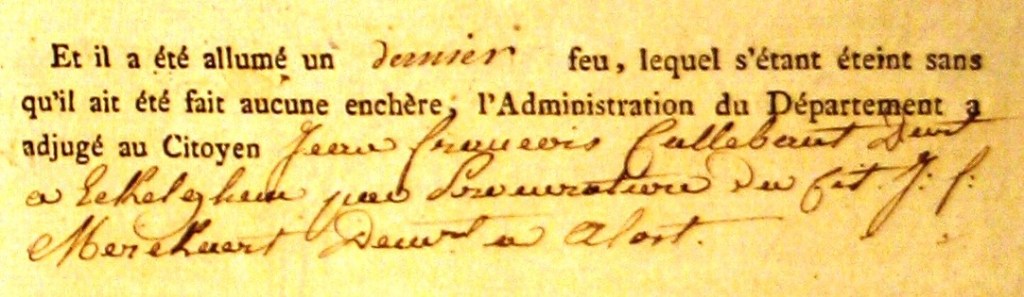 Et il a été allumé un dernier feu, lequel s'étant éteint sans
qu'il ait été fait aucune enchère, l'Administration du Département a
adjugé au Citoyen Jean francois Callebaut Deurt
a Echelghem par Procuration du Cit. J: f:
Merckaert Deurt a Alost.